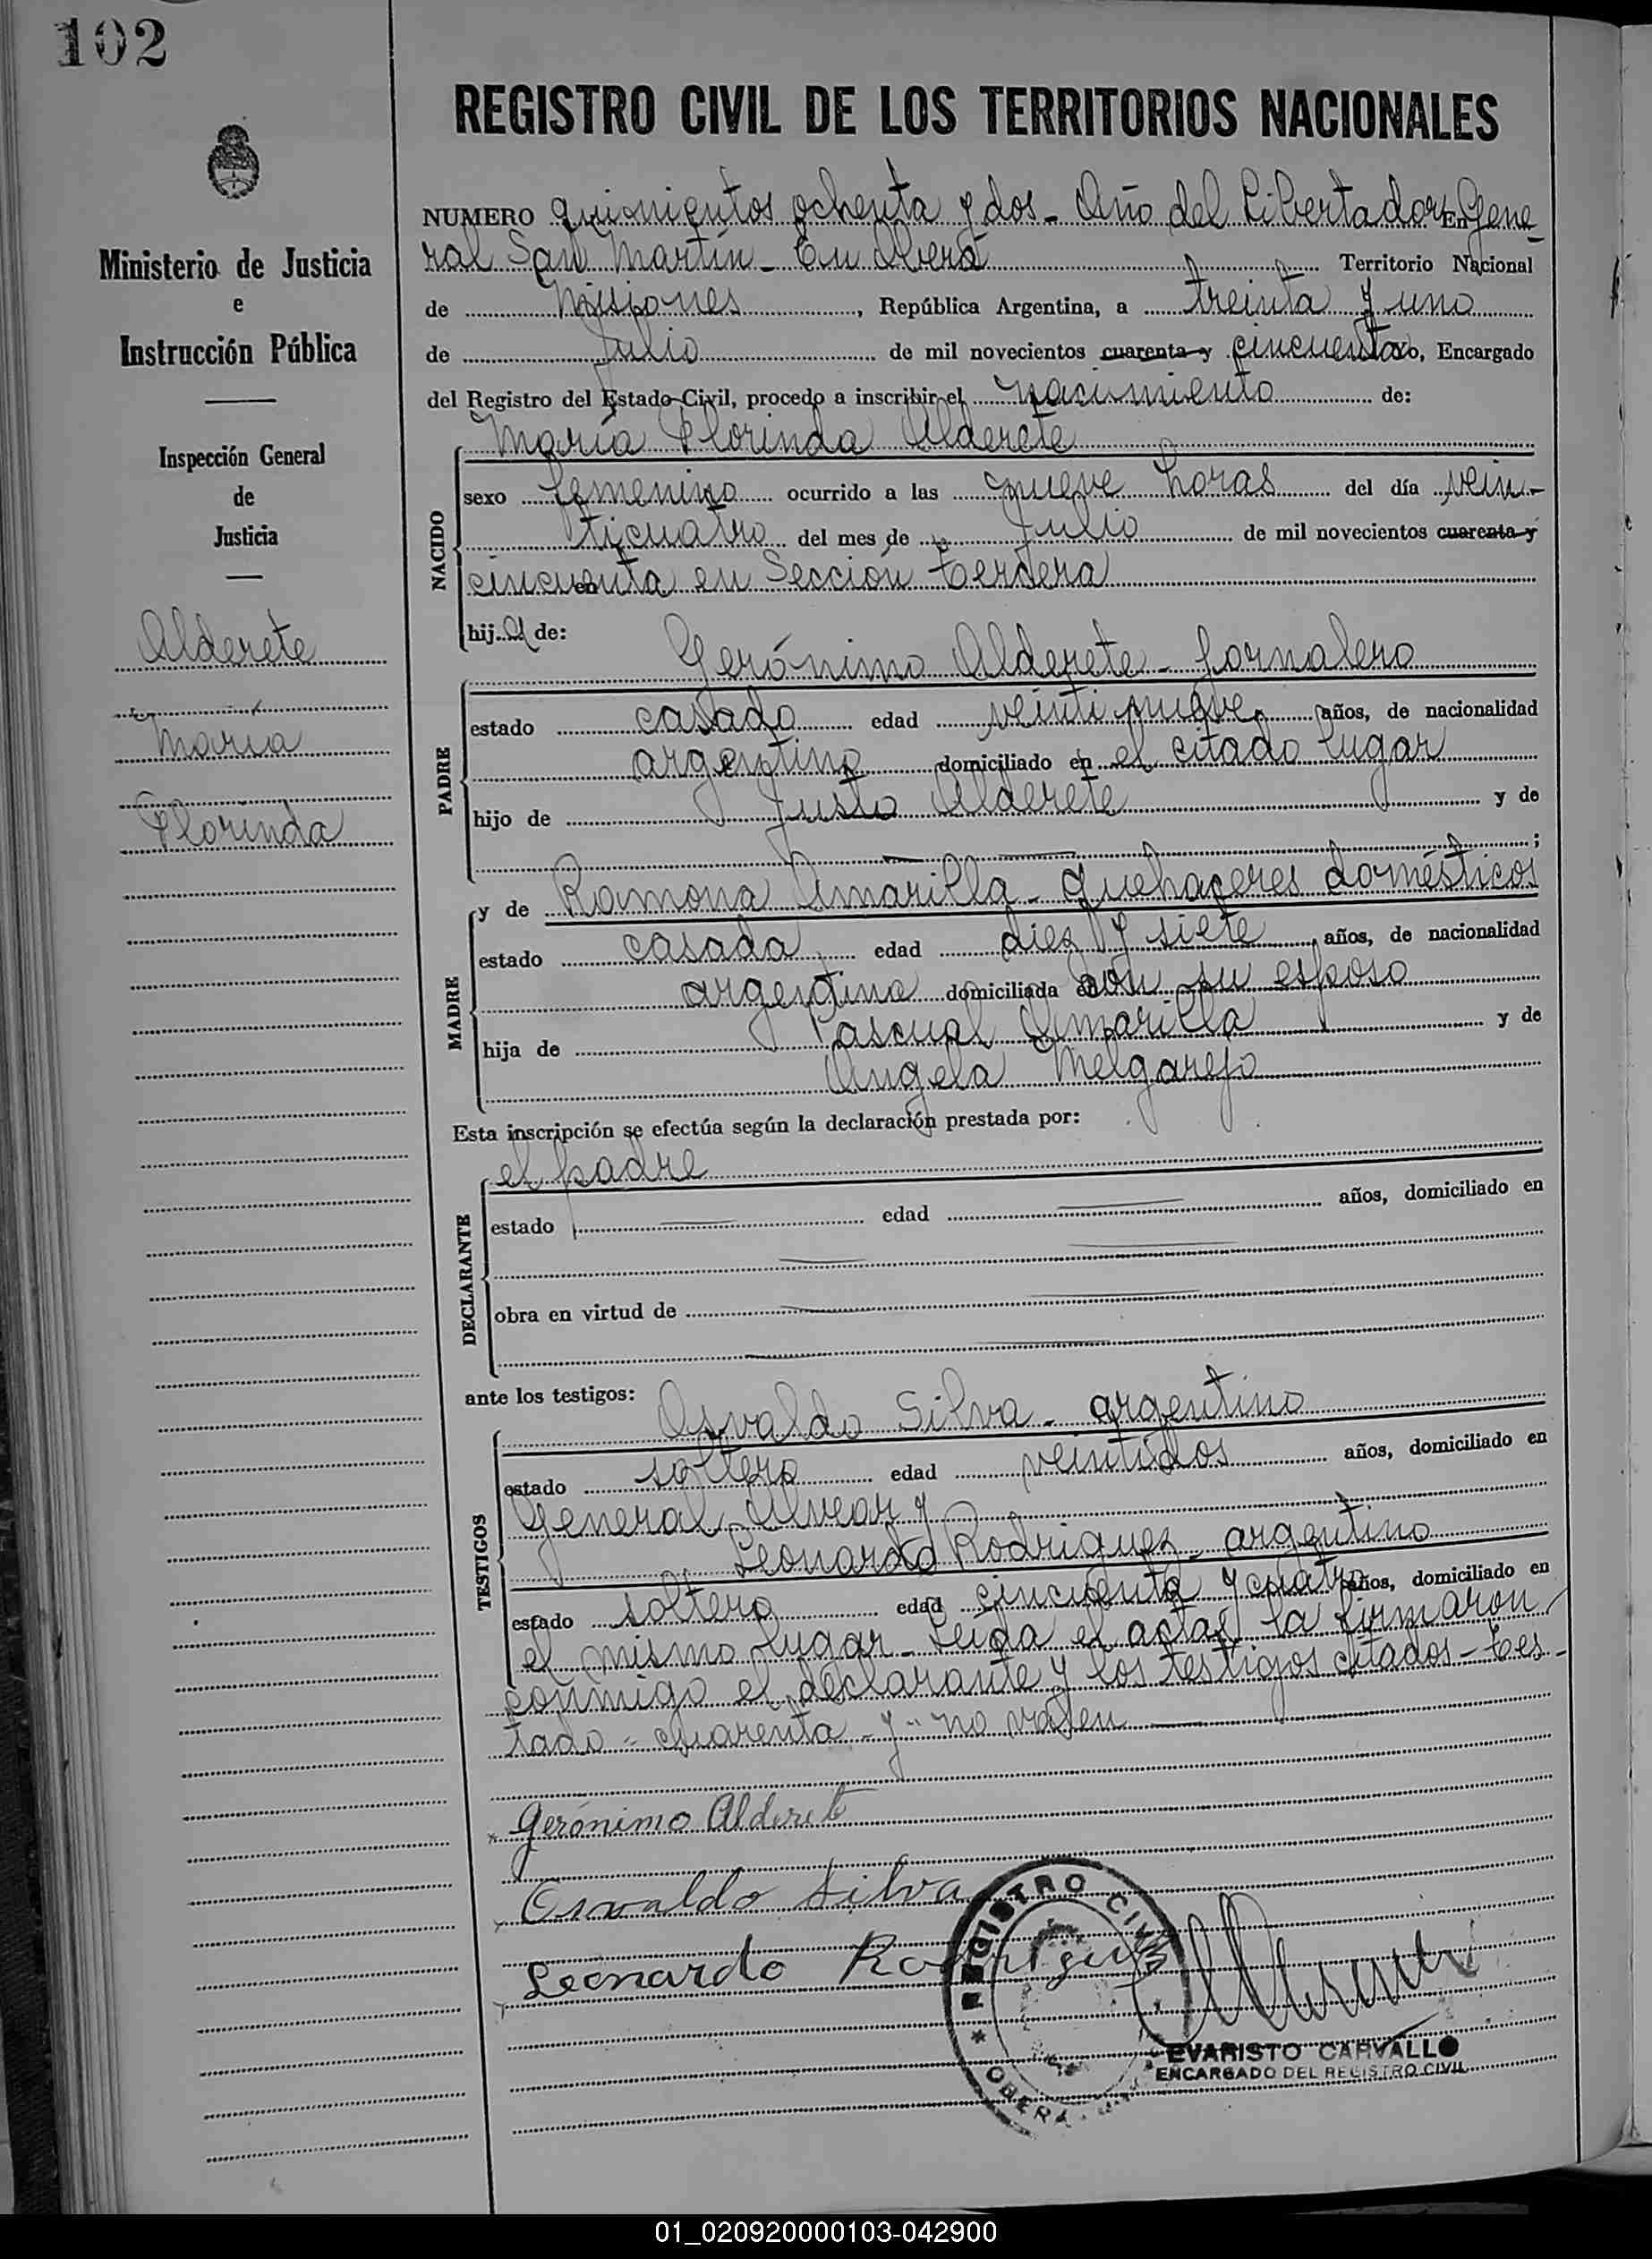 102
REGISTRO CIVIL DE LOS TERRITORIOS NACIONALES
Ministerio de Justicia
e
Instrucción Pública
Inspección General
de
Justicia
Alderete
María
Florinda
NUMERO quinientos ochenta y dos - Año del Libertador En Gene
ral San Martín - En Oberá Territorio Nacional
de Misiones, República Argentina, a treinta y uno
de Julio de mil novecientos cuarenta y cincuenta, Encargado
del Registro del Estado Civil, procedo a inscribir el nacimiento de:
María Florinda Alderete
NACIDO
sexo femenino ocurrido a las nueve horas del día vein-
ticuatro del mes de Julio de mil novecientos cuarenta y
cincuenta en Sección Tercera
hija de:
Gerónimo Alderete - Jornalero
PADRE
estado casado edad veintinueve años, de nacionalidad
argentino domiciliado en el citado lugar
hijo de Justo Alderete y de
;
MADRE
y de Ramona Amarilla - quehaceres domésticos
estado casada edad diez y siete años, de nacionalidad
argentina domiciliada con su esposo
hija de Pascual Amarilla y de
Angela Melgarejo
Esta inscripción se efectúa según la declaración prestada por:
el padre
DECLARANTE
estado edad años, domiciliado en
obra en virtud de
ante los testigos:
Osvaldo Silva - argentino
TESTIGOS
estado soltero edad veintidos años, domiciliado en
General Alvear y
Leonardo Rodriguez - argentino
estado soltero edad cincuenta y cuatro años, domiciliado en
el mismo lugar - Leída el acta, la firmaron
conmigo el declarante y los testigos citados - Tes-
tado - cuarenta - y - no valen
Gerónimo Alderete
Osvaldo Silva
Leonardo Rodriguez
REGISTRO CIVIL
* OBERÁ
EVARISTO CARVALLO
ENCARGADO DEL REGISTRO CIVIL
01_020920000103-042900